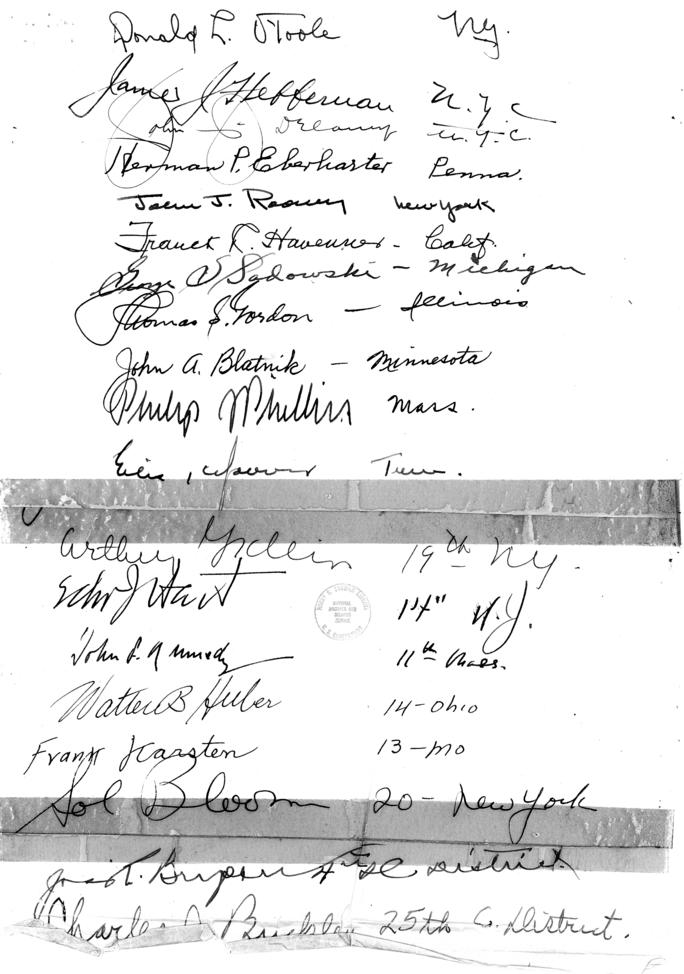 Donald L. O'Toole Ny.
James J Heffernan N.Y.C
John J. Delaney N.Y.C.
Herman P. Eberharter Penna.
John J. Rooney New York
Franck R. Havenner - Calif.
George Sadowski - Michigan
Thomas S. Gordon - Illinois
John A. Blatnik - Minnesota
Philip Philbin Mass.
Arthur G. Klein 19th NY.
Edw J Hart 14" N.J.
John F. Kennedy 11th Mass.
Walter B Huber 14-Ohio
Frank Karsten 13-Mo
Sol Bloom 20- New York
Bryson 4th SC District
Charles A Buckley 25th C. District.